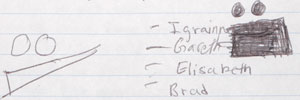 - Igrainne
- Gareth
- Elisabeth
- Brad